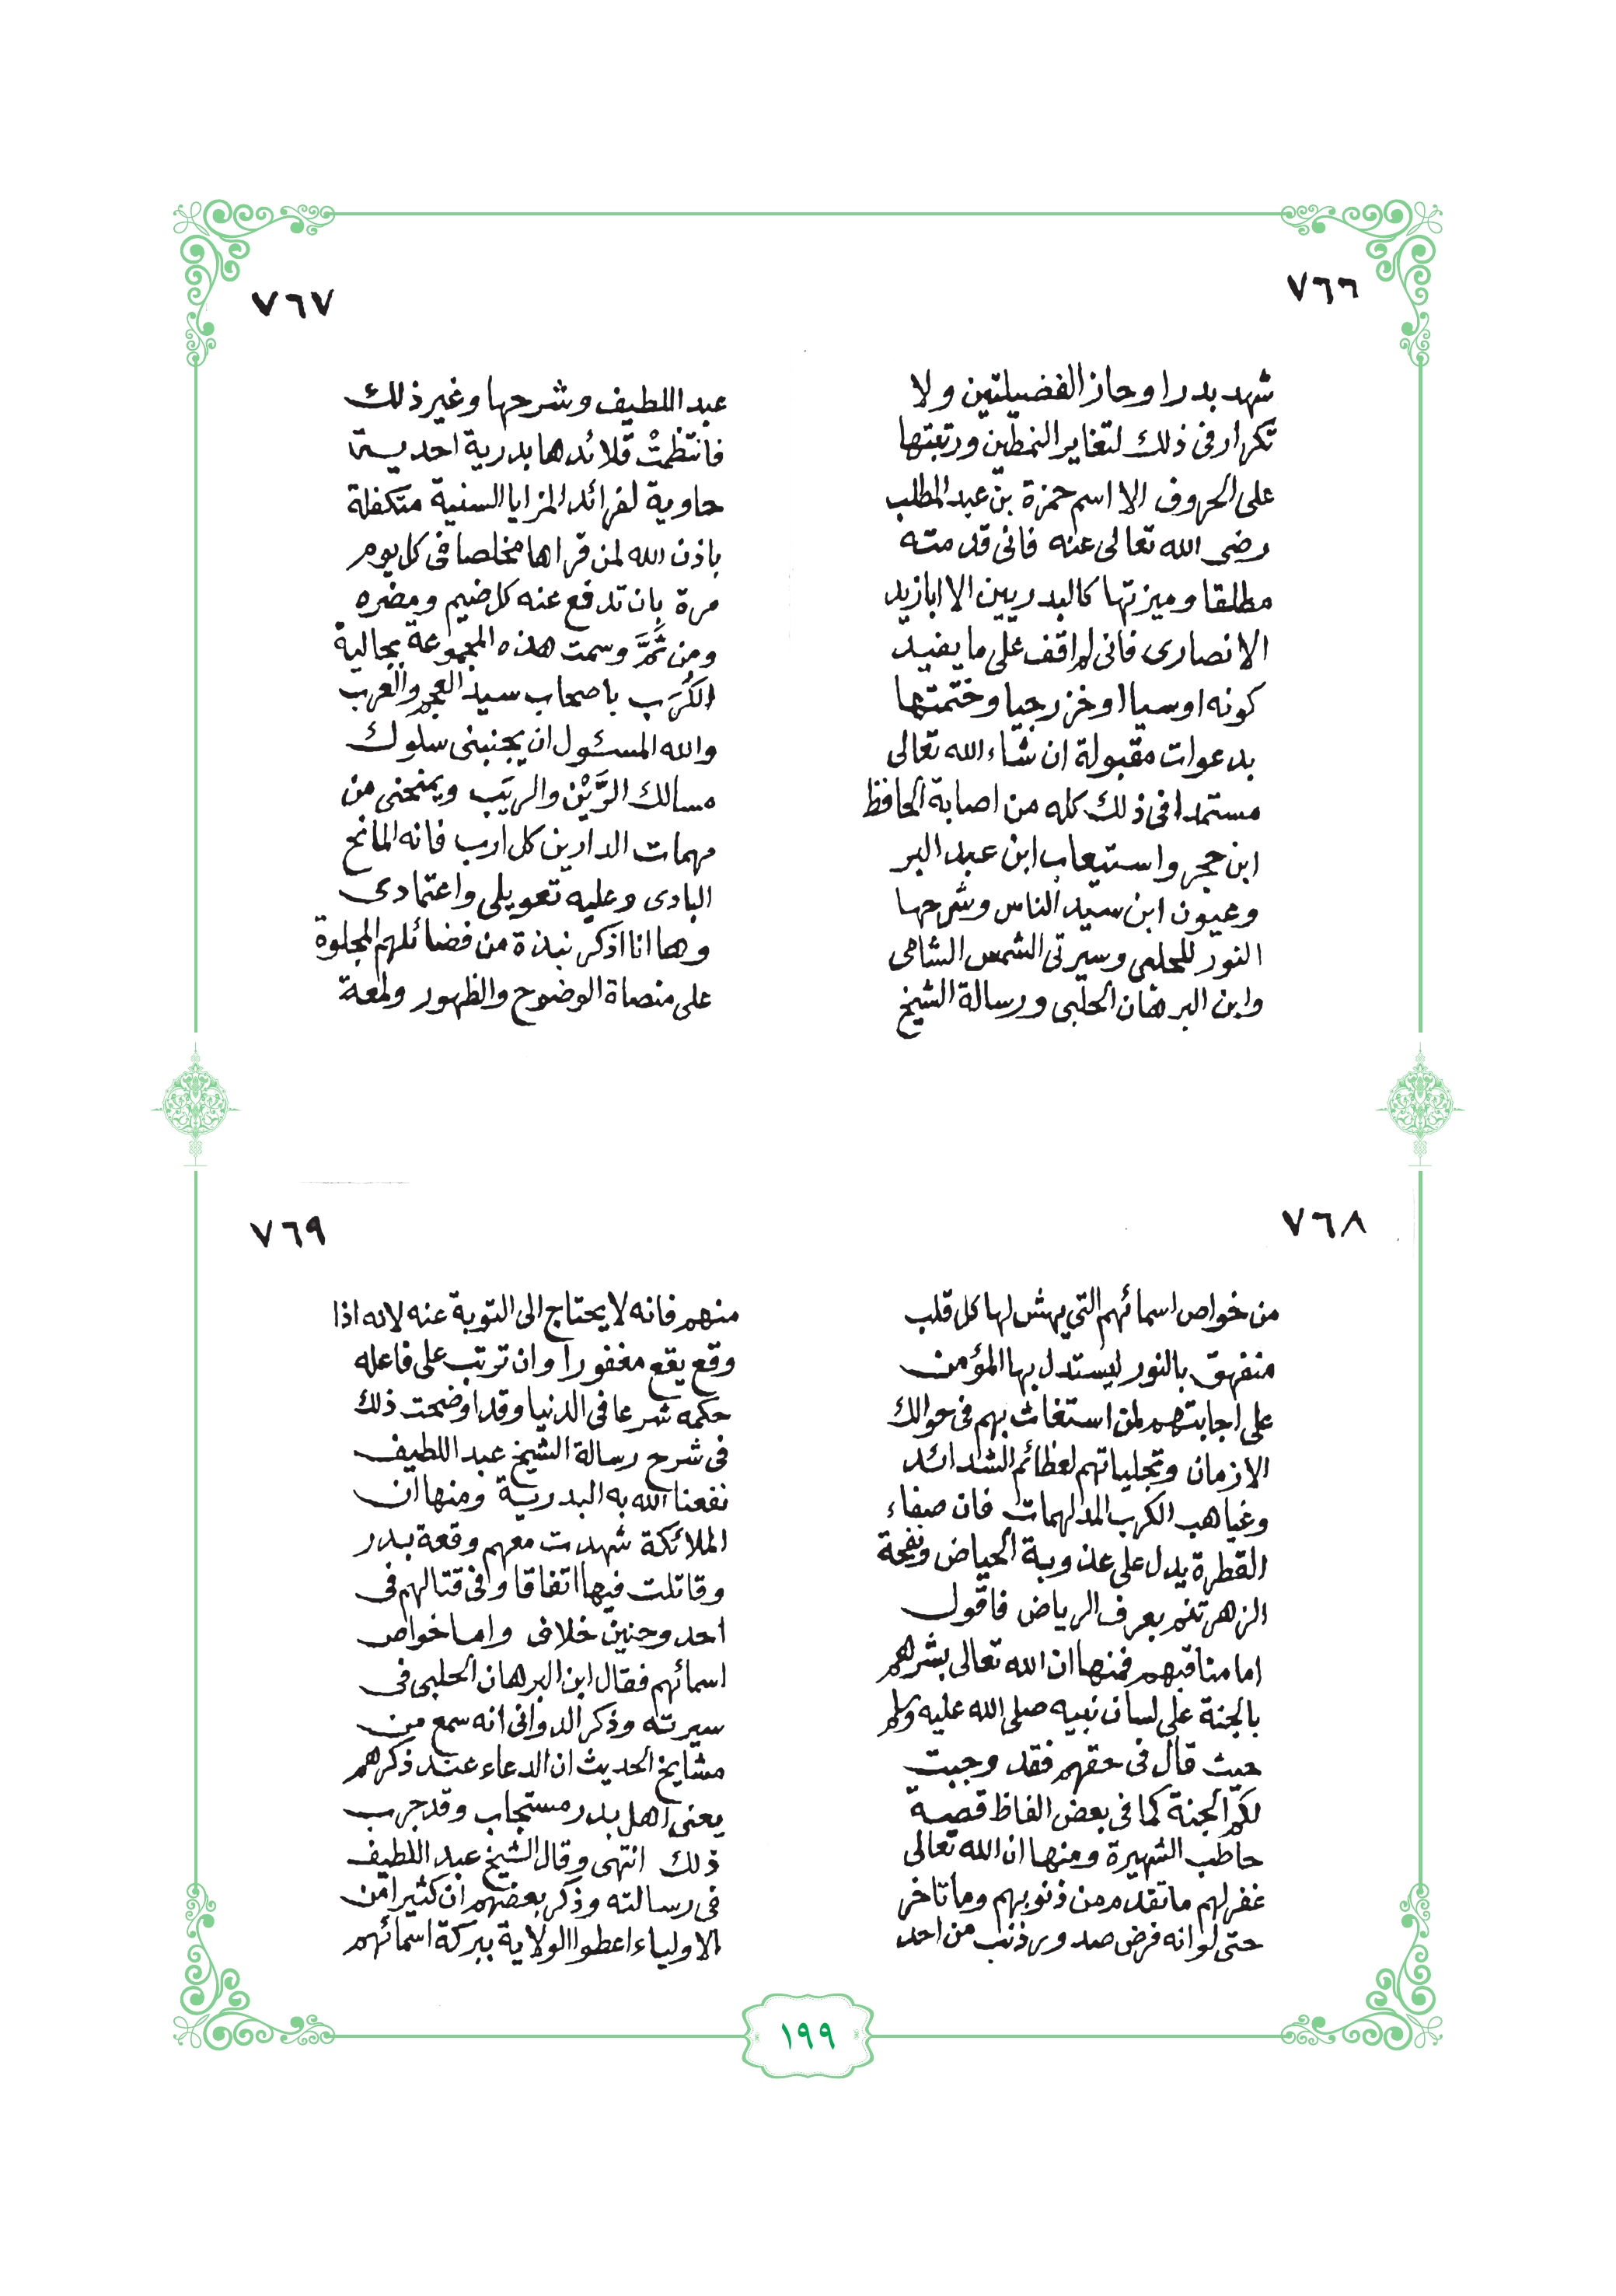 ٧٦٦
شهد بدرا وحاز الفضيلتين ولا
تكرار فى ذلك لتغاير النمطين ورتبتها
على الحروف الا اسم حمزة بن عبد المطلب
رضى الله تعالى عنه فانى قدمته
مطلقا وميزتها كالبدريين الا ابازيد
الانصارى فانى لم اقف على ما يفيد
كونه اوسيا او خزرجيا وختمتها
بدعوات مقبولة ان شاء الله تعالى
مستمدا فى ذلك كله من اصابة الحافظ
ابن حجر واستيعاب ابن عبد البر
وعيون ابن سيد الناس وشرحها
النور للحلبى وسيرتى الشمس الشامى
وابن البرهان الحلبى ورسالة الشيخ
٧٦٧
عبد اللطيف وشرحها وغير ذلك
فانتظمتْ قلائدها بدرية احدية
حاوية لفرائد المزايا السنية متكفلة
باذن الله لمن قراها مخلصا فى كل يوم
مرة بان تدفع عنه كل ضيم ومضره
ومن ثَمَّ وسمت هذه المجموعة بجالية
الكُرَب باصحاب سيد العجم والعرب
والله المسئول ان يجنبنى سلوك
مسالك الرَّيْن والريَب ويمنحنى من
مهمات الدارين كل ارب فانه المانح
البادى وعليه تعويلى واعتمادى
وها انا اذكر نبذة من فضائلهم المجلوة
على منصاة الوضوح والظهور ولمعة
٧٦٨
من خواص اسمائهم التى يهش لها كل قلب
منفهق بالنور ليستدل بها المؤمن
على اجابتهم لمن استغاث بهم فى حوالك
الازمان وتجلياتهم لعظائم الشدائد
وغياهب الكرب المدلهمات فان صفاء
القطرة يدل على عذوبة الحياض ونفحة
الزهر تنم بعرف الرياض فاقول
اما مناقبهم فمنها ان الله تعالى بشرهم
بالجنة على لسان نبيه صلى الله عليه وسلم
حيث قال فى حقهم فقد وجبت
لكم الجنة كما فى بعض الفاظ قصية
حاطب الشهيرة ومنها ان الله تعالى
غفر لهم ما تقدم من ذنوبهم وما تاخر
حتى لو انه فرض صدور ذنب من احد
٧٦٩
منهم فانه لا يحتاج الى التوبة عنه لانه اذا
وقع يقع مغفورا وان ترتب على فاعله
حكمه شرعا فى الدنيا وقد اوضحت ذلك
فى شرح رسالة الشيخ عبد اللطيف
نفعنا الله به البدرية ومنها ان
الملائكة شهدت معهم وقعة بدر
وقاتلت فيها اتفاقا وفى قتالهم فى
احد وحنين خلاف واما خواص
اسمائهم فقال ابن البرهان الحلبى فى
سيرته وذكر الدوانى انه سمع من
مشايخ الحديث ان الدعاء عند ذكرهم
يعنى اهل بدر مستجاب وقد جرب
ذلك انتهى وقال الشيخ عبد اللطيف
فى رسالته وذكر بعضهم ان كثيرا من
الاولياء اعطوا الولاية ببركة اسمائهم
١٩٩